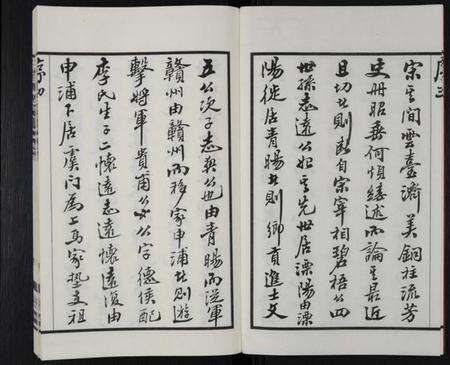 序三
宋之間雲臺濟美銅柱流芳
史冊昭垂何煩縷述而論其最近
且切者則彭自宋宰相碧梧公四
世孫志遠公始其先世居溧陽由溧
陽徙居青暘者則鄉貢進士文
五公次子志奧公也由青暘而從軍
贛州由贛州而移家申浦者則游
擊將軍貴甫公公字德侯配
李氏生子二懷遠志遠懷遠復由
申浦卜居虞門為上馬家墊支祖
序